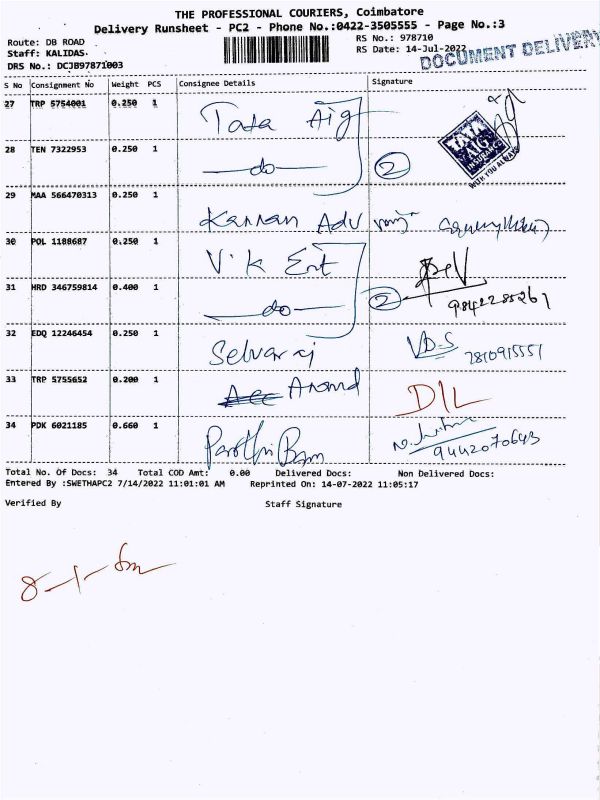 THE PROFESSIONAL COURIERS, Coimbatore
Delivery Runsheet - PC2 - Phone No.:0422-3505555 - Page No.:3
Route: DB ROAD
RS No.: 978710
Staff: KALIDAS.
RS Date: 14-Jul-2022
DOCUMENT DELIVERY
DRS No.: DCJB97871003
S No Consignment No Weight PCS Consignee Details Signature
27 TRP 5754001 0.250 1 Tata Aig
TATA AIG INSURANCE
WITH YOU ALWAYS
28 TEN 7322953 0.250 1 do 2
29 MAA 566470313 0.250 1 Kannan Adv
30 POL 1188687 0.250 1 V.K Ent
31 HRD 346759814 0.400 1 do 2 9842285261
32 EDQ 12246454 0.250 1 Selvaraj V.D.S 7810915551
33 TRP 5755652 0.200 1 Anand D/L
34 PDK 6021185 0.660 1 9442070643
Total No. Of Docs: 34 Total COD Amt: 0.00 Delivered Docs: Non Delivered Docs:
Entered By :SWETHAPC2 7/14/2022 11:01:01 AM Reprinted On: 14-07-2022 11:05:17
Verified By Staff Signature